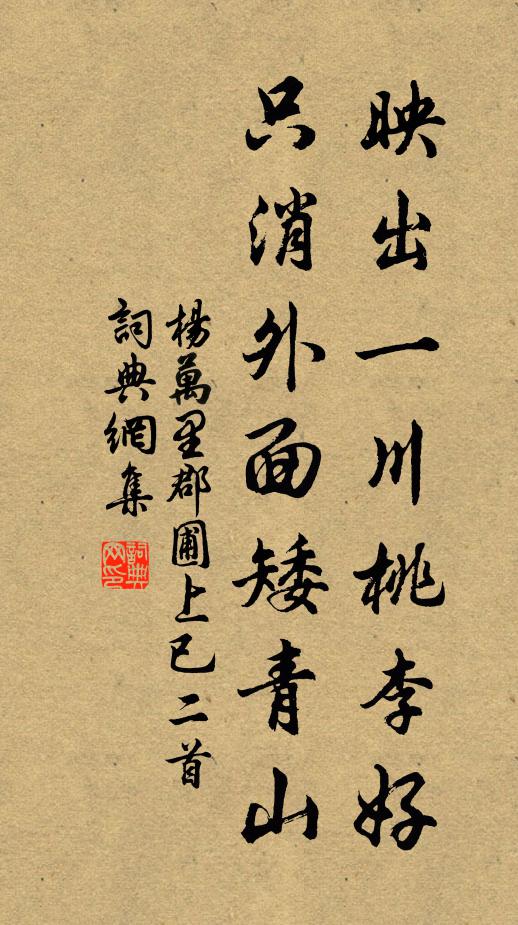 映出一川桃李好
只消外面矮青山
楊萬里郡圃上巳二首
詞典網集
詞典网印